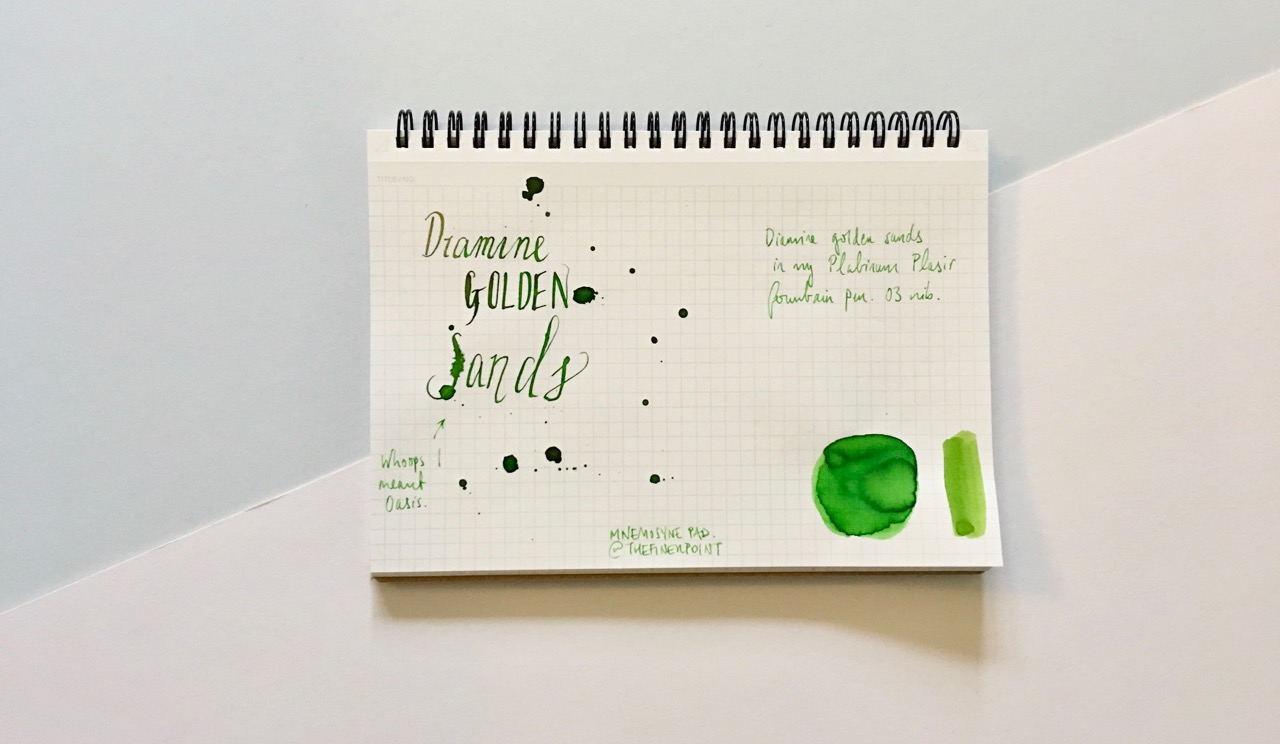 TITLE/NO.
Diamine
GOLDEN
Sands
Whoops
meant
Oasis.
Diamine golden sands
in my Platinum Plasir
fountain pen. 03 nib.
MNEMOSYNE PAD.
@THEFINERPOINT